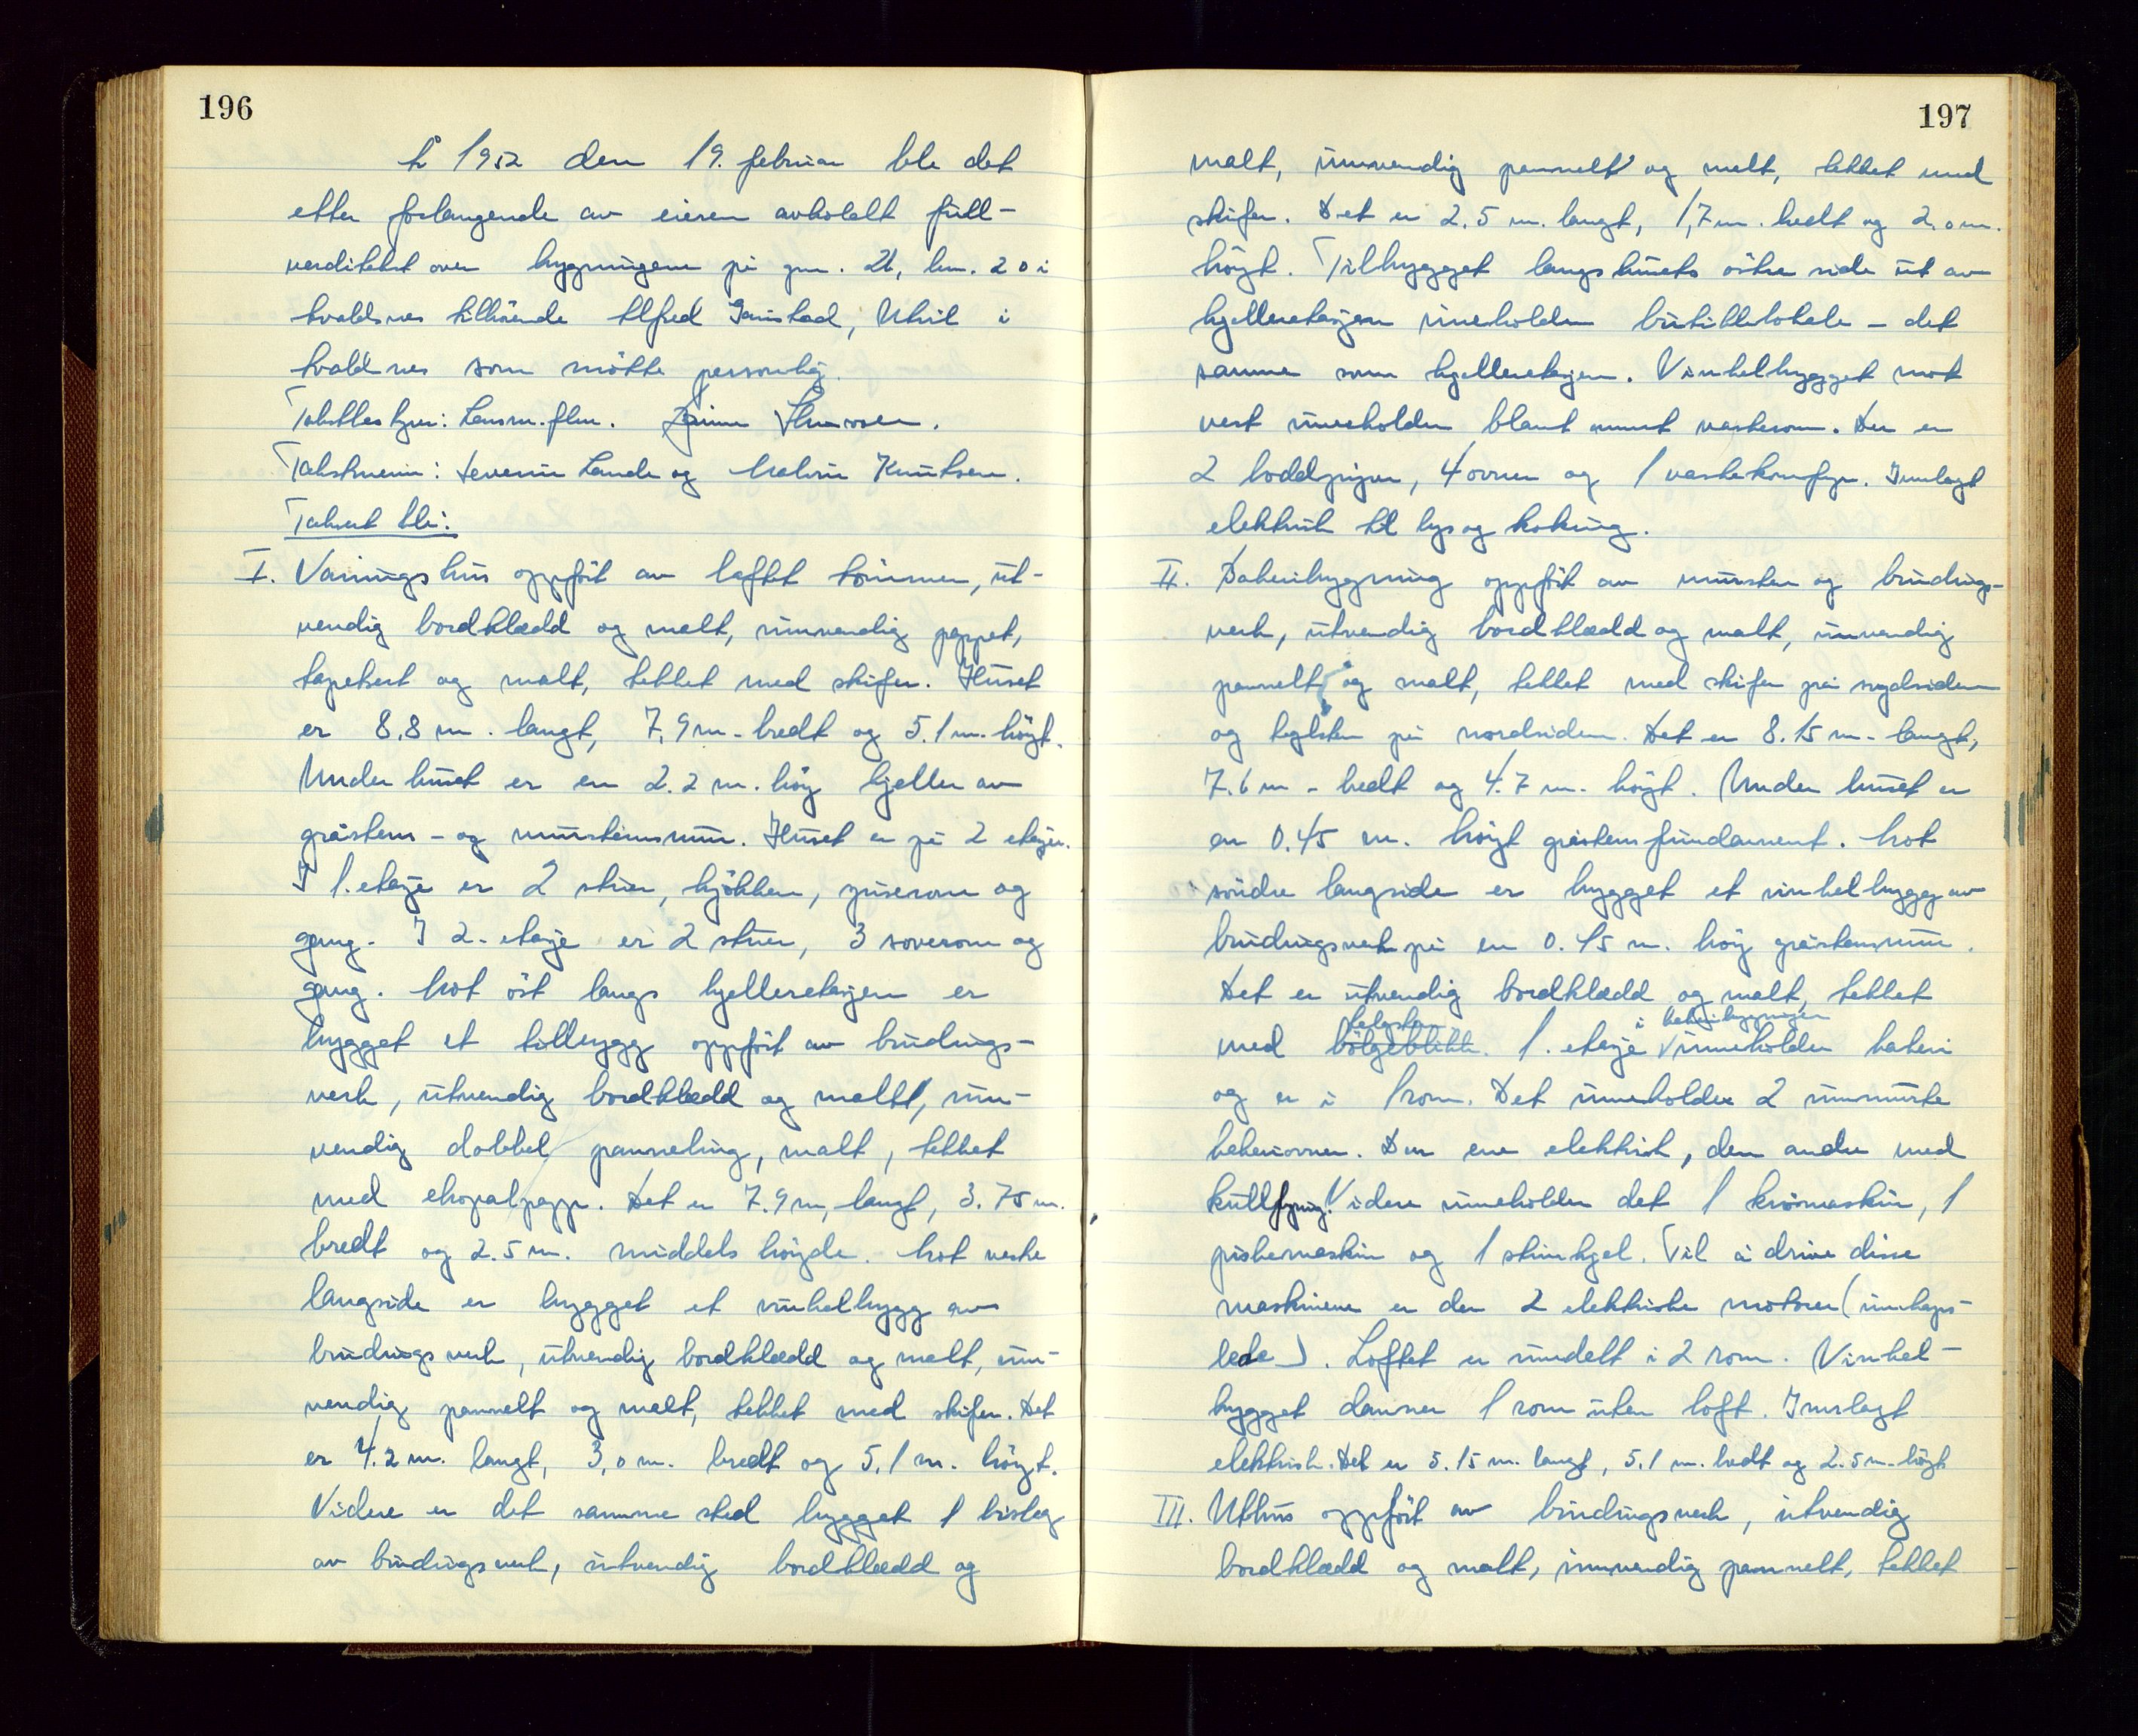 196
År 1952 den 19. februar ble det
etter forlangende av eieren avholdt full-
verditakst over bygningene på gnr. 21, bnr. 20 i
Avaldsnes tilhørende Alfred Utvik i
Avaldsnes som møtte personlig.
Takstbestyrer: Lensm.flm.
Takstmenn: Severin Lande og Malvin Knutsen.
Taksert ble:
I. Våningshus oppført av laftet tømmer, ut-
vendig bordklædd og malt, innvendig pappet,
tapetsert og malt, tekket med skifer. Huset
er 8,8 m. langt, 7,9 m. bredt og 5.1 m. høyt.
Under huset er en 2.2 m. høy kjeller av
gråstens- og murstensmur. Huset er på 2 etasjer.
I 1. etasje er 2 stuer, kjøkken, spiserom og
gang. I 2. etasje er 2 stuer, 3 soverom og
gang. Mot øst langs kjelleretasjen er
bygget et tilbygg oppført av bindings-
verk, utvendig bordklædd og malt, inn-
vendig dobbel panneling, malt, tekket
med ekopalpapp. Det er 7.9 m, langt, 3.75 m.
bredt og 2.5 m. middels høyde. Mot vestre
langside er bygget et vinkelbygg av
bindingsverk, utvendig bordklædd og malt, inn-
vendig pannelt og malt, tekket med skifer. Det
er 4.2 m. langt, 3,0 m. bredt og 5,1 m. høyt.
Videre er det samme sted bygget 1 bislag
av bindingsverk, utvendig bordklædd og
197
malt, innvendig pannelt og malt, tekket med
skifer. Det er 2.5 m. langt, 1,7 m. bredt og 2,0 m.
høyt. Tilbygget langs husets østre side ut av
kjelleretasjen inneholder butikklokale - det
samme som kjelleretasjen. Vinkelbygget mot
vest inneholder blant annet vaskerom. Der er
2 loddpiper, 4 ovner og 1 vaskekomfyr. Innlagt
elektrisk til lys og koking.
II. Bakeribygning oppført av mursten og bindings-
verk, utvendig bordklædd og malt, innvendig
pannelt og malt, tekket med skifer på sydsiden
og teglsten på nordsiden. Det er 8.15 m. langt,
7.6 m. bredt og 4.7 m. høyt. Under huset er
en 0.45 m. høyt gråstensfundament. Mot
søndre langside er bygget et vinkelbygg av
bindingsverk på en 0.45 m. høy gråstensmur.
Det er utvendig bordklædd og malt, tekket
med bølgeblikk. 1. etasje i bakeribygningen inneholder bakeri
og er i 1 rom. Det inneholder 2 innmurte
bakerovner. Den ene elektrisk, den andre med
kullfyring. Videre inneholder det 1 knamaskin, 1
piskemaskin og 1 Til å drive disse
maskinene er der 2 elektriske motorer (innkaps-
lede). Loftet er inndelt i 2 rom. Vinkel-
bygget danner 1 rom uten loft. Innlagt
elektrisk. Det er 5.15 m. langt, 5.1 m. bredt og 2.5 m. høyt
III. Uthus oppført av bindingsverk, utvendig
bordklædd og malt, innvendig pannelt, tekket